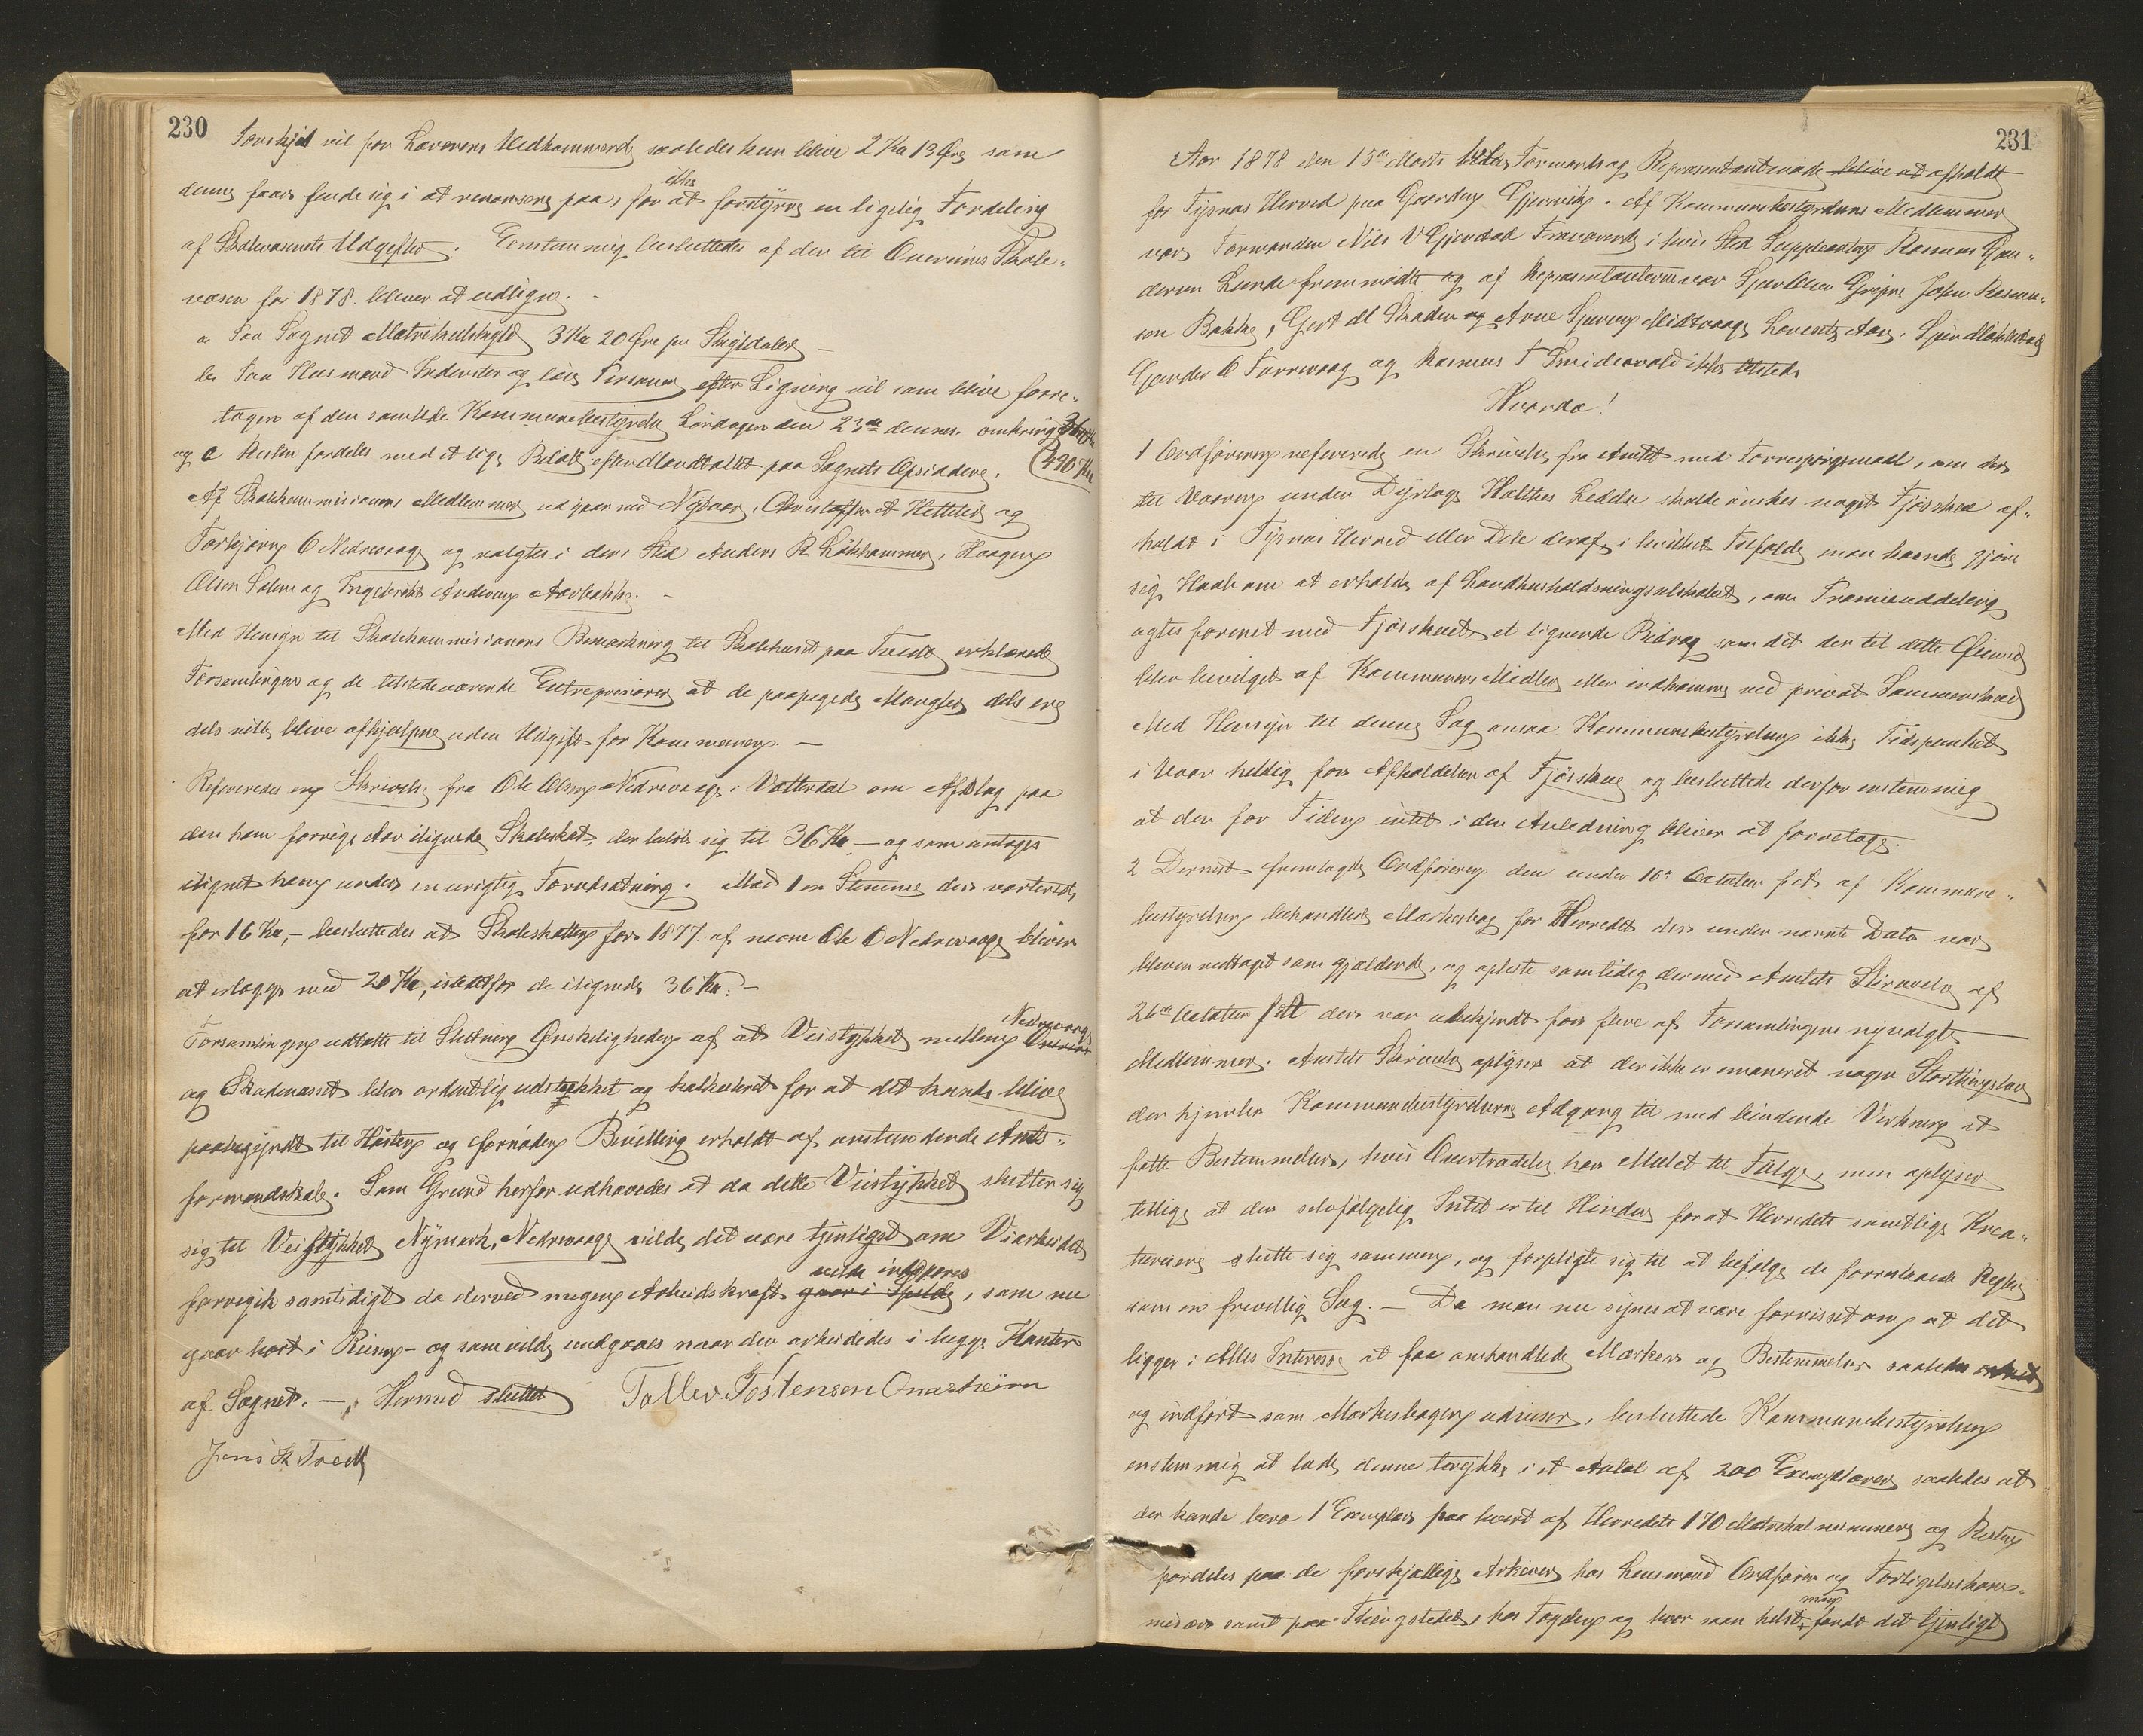 230
Forskjel vil for Læreren Vedkommende saaledes kun blive 2 Kr 13 Øre som
denne faar finde sig i at renonsere paa, for ikke at forstyrre en ligelig Fordeling
af Skolevæsenets Udgifter. Eenstemmig besluttedes af der til Onereims Skole-
væsen for 1878 bliver at udligne.
a Paa Sognets Matrikulskyld 3 Kr 20 Øre pr Skylddaler
b Paa Husmænd Inderster og løse Personer efter Ligning vil som blive fore-
tagen af den samlede Kommunebestyrelse Lørdagen den 23de dennes. omkring
og c Resten fordeles med et lige Beløb efter Mandtallet paa Sognets Opsiddere. (490 Kr
Af Skolekommissionens Medlemmer udgaar ved Nytaar, Christoffer Hetteleid og
Torbjørn O Nedrevaage og valgtes i deres Sted Anders R Løkhammer, Haagen
Olsen Solem og Ingebrikt Andersen Aarbakke.
Med Hensyn til Skolekommissionens Bemærkning til Skolehuset paa Tveit erklærede
Forsamlingen og de tilstedeværende Entreprenører at de paapegede Mangler dels ere
dels ville blive afhjulpne uden Udgift for Kommunen.
Refereredes en Skrivelse fra Ole Olsen Nedrevaage i Vatterdal om Afslag paa
den ham forrige Aar ilignede Skoleskat, der beløb sig til 36 Kr. – og som antoges
ilignet ham under en urigtig Forudsætning. Mod 1 en Stemme der voterede
for 16 Kr, – besluttedes at Skoleskatten for 1877 af nævnte Ole O Nedrevaage bliver
at erlægge med 20 Kr, istedetfor de ilignede 36 Kr. –
Forsamlingen udtalte til Slutning Ønskeligheden af at Veistykket mellem Nedrevaage
og Skadenæsset blev ordentlig udstukket og kalkuleret for at det kunde blive
paabegyndt til Høsten og fornøden Bevilling erholdt af anstundende Amts-
formandskab. Som Grund herfor udhævedes at da dette Veistykket slutter sig
sig til Veistykket Nymark, Nedrevaage vilde det være tjenligst om Viarbeidet
foregik samtidigt da derved megen Arbeidskraft gaar i Spilde vilde indspares, som nu
gaar bort i Reiser – og som vilde undgaaes naar der arbeidedes i begge Kanter
af Sognet. – Hermed sluttet Tollev Tostensen Onarheim
Jens K Tveit
231
Aar 1878 den 15de Marts Formands og Repræsentantmøde blive at afholdt
for Tysnæs Herred paa Gaarden Gjerevik. Af Kommunebestyrelsens Medlemmer
var Formanden Nils V Gjerstad Fraværende i hvis Sted Suppleanten Rasmus Gun-
dersen Lunde fremmødte og af Repræsentanterne var Sjur Olsen Gripne John Rasmus-
sen Bakke, Gert M Skaden og Arne Sjursen Midtvaage Lavents Aase, Sjur Møklestad
Gunder O Farrevaag og Rasmus T Smidsvold ikke tilstede
Hvorda!
1 Ordføreren refererede en Skrivelse fra Amtet med Forespørgsmaal, om der
til Vaaren under Dyrlæge Holthes Ledelse skulde ønskes noget Fjøsskue af-
holdt i Tysnæs Herred eller Dele deraf, i hvilket Tilfælde man kunde gjøre
sig Haab om at erholde af Landhusholdningsselskabet, om Præmieuddeling
agtes forenet med Fjøsskuet et lignende Bidrag som det der til dette Øiemed
blev bevilget af Kommunens Midler eller indkommer ved privat Sammenskud
Med Hensyn til denne Sag ansaa Kommunebestyrelsen ikke Tidspunktet
i Vaar heldig for Afholdelsen af Fjøsskue og besluttede derfor enstemmig
at der for Tiden intet i den Anledning bliver at foretage.
2 Dernæst fremlagde Ordføreren den under 16de October f.A. af Kommune-
bestyrelsen behandlede Markebog for Herredet der under nævnte Dato var
bleven vedtaget som gjældende, og oplæste samtidig dermed Amtets Skrivelse af
26de October f.A. der var ubekjendt for flere af Forsamlingens nyvalgte
Medlemmer. Amtets Skrivelse oplyser at der ikke er emaneret nogen Storthingslov
der hjemler Kommunebestyrelserne Adgang til med bindende Virkning at
fatte Bestemmelser, hvis Overtrædelse har Mulct til Følge, men oplyser
tillige at der selvfølgelig Intet er til Hinder for at Herredets samtlige Krea-
tureiere slutte sig sammen, og forpligte sig til at befølge de foreslaaede Regler
som en frivillig Sag. – Da man nu synes at være forvisset om at det
ligger i Alles Interesse at faa omhandlede Mærker og Bestemmelser saaledes
og indført som Markebogen udviser, besluttede Kommunebestyrelsen
enstemmig at lade denne trykke i et Antal af 200 Exemplarer saaledes at
der kunde være 1 Exemplar paa hvert af Herredets 170 Matrikulnummere og Resten
fordeles paa de forskjellige Arkiver hos Lensmand Ordfører og Forligelseskom-
missær samt paa Thingstedet, hos Fogden og hvor som helst man fandt det tjenligt